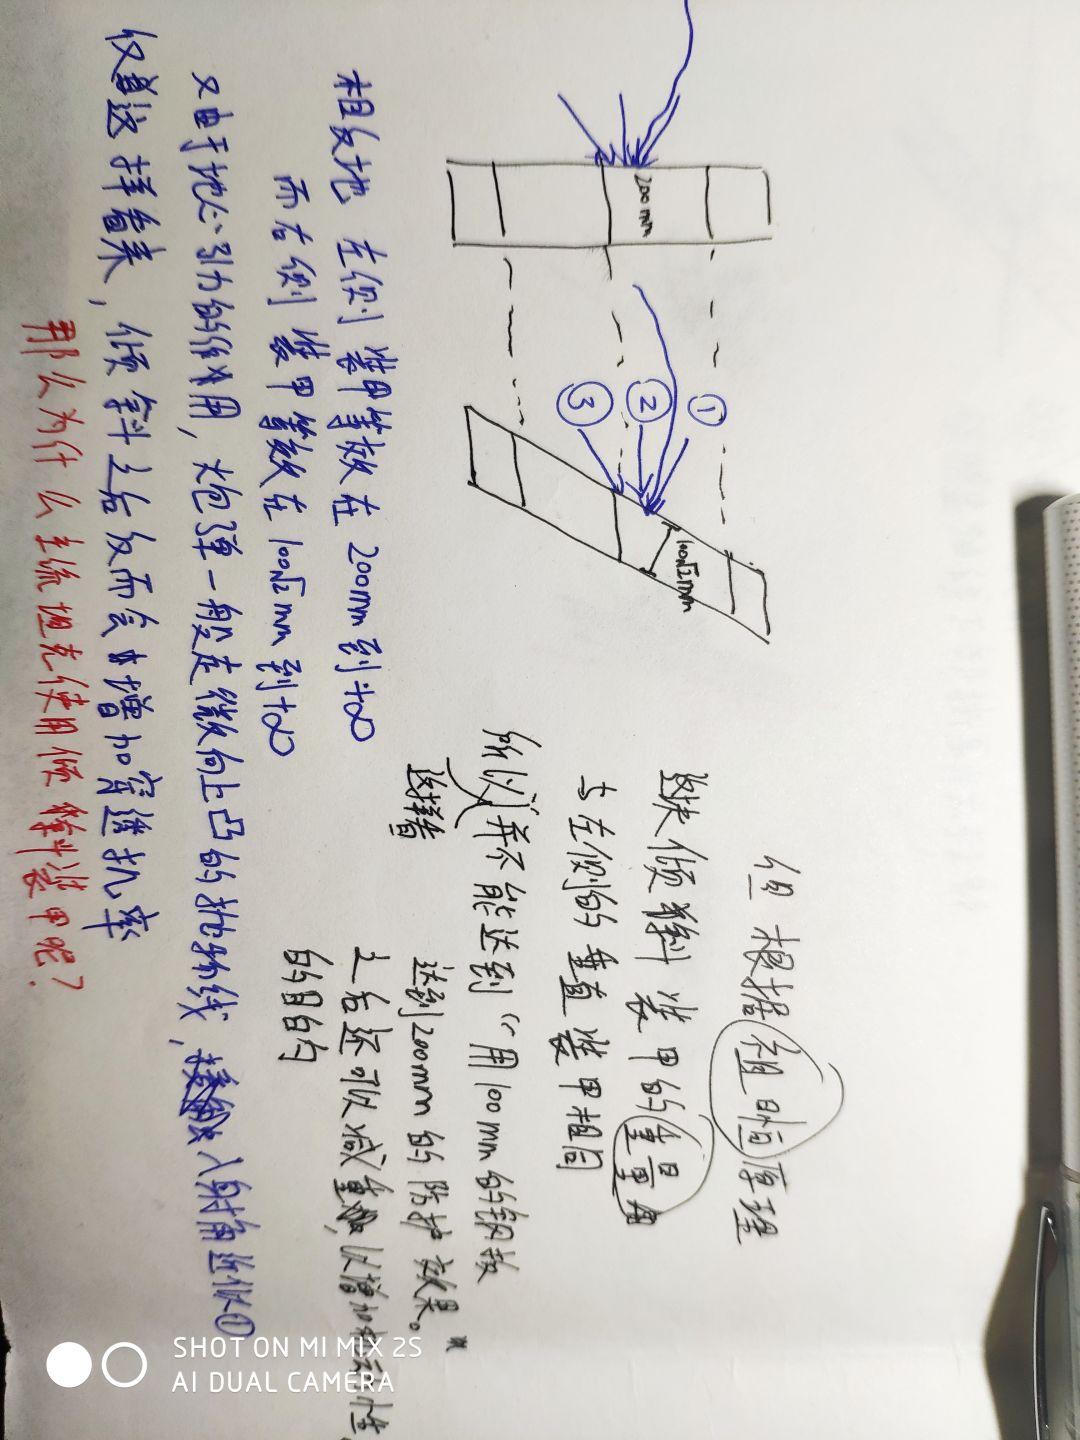 200mm
①
②
③
100√2mm
但根据祖暅原理
这块倾斜装甲的重量
与左侧的垂直装甲相同
所以并不能达到“用100mm的钢板
这样看
达到200mm的防护效果。”
之后还可以减重,以增加机动性
的目的
相反地 左侧装甲等效在200mm到+∞
而右侧装甲等效在100√2mm到+∞
又由于地心引力的作用,炮弹一般走微向上凸的抛物线,入射角近似①
仅单这样看来,倾斜之后反而会增加穿透机率
那么为什么主流坦克使用倾斜装甲呢?
SHOT ON MI MIX 2S
AI DUAL CAMERA